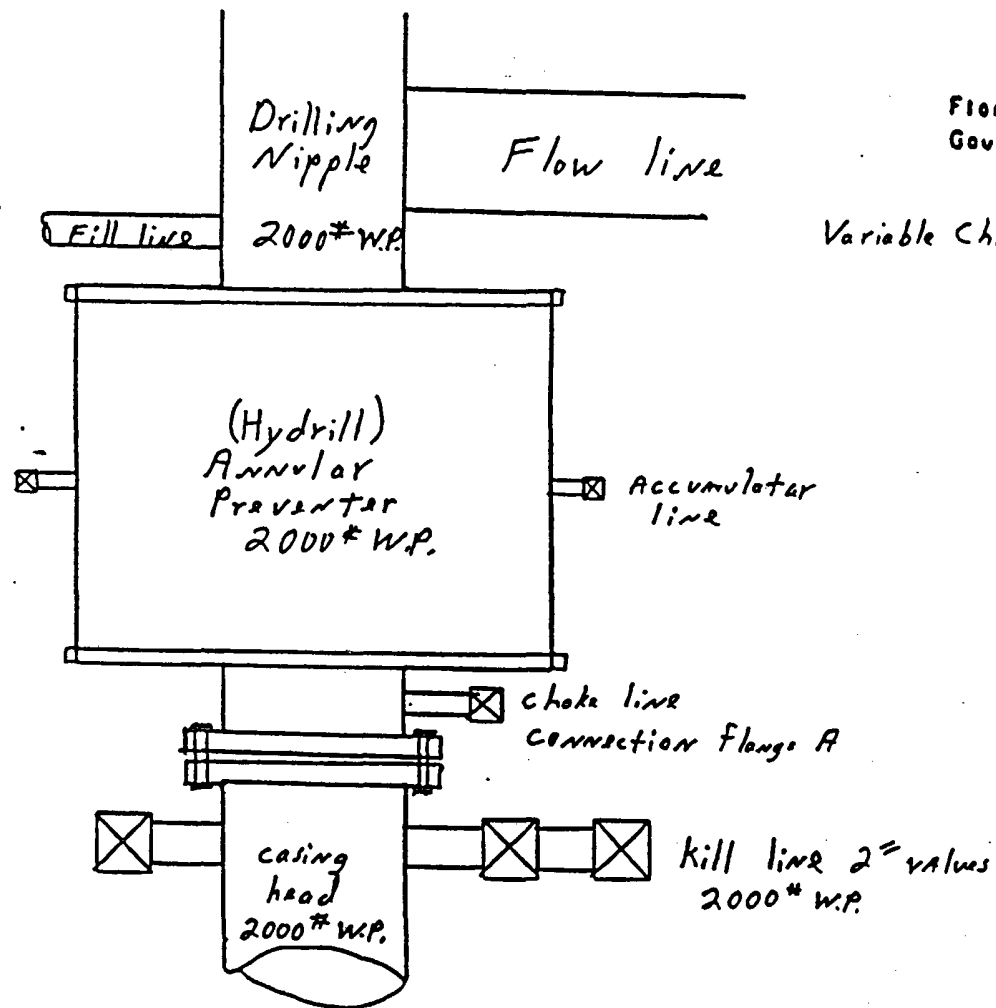 Drilling
Nipple
Flow line
Fill line
2000# W.P.
Variable
(Hydrill)
Annular
Preventer
2000# W.P.
Accumulator
line
choke line
connection flange A
casing
head
2000# W.P.
kill line 2" valves
2000# W.P.